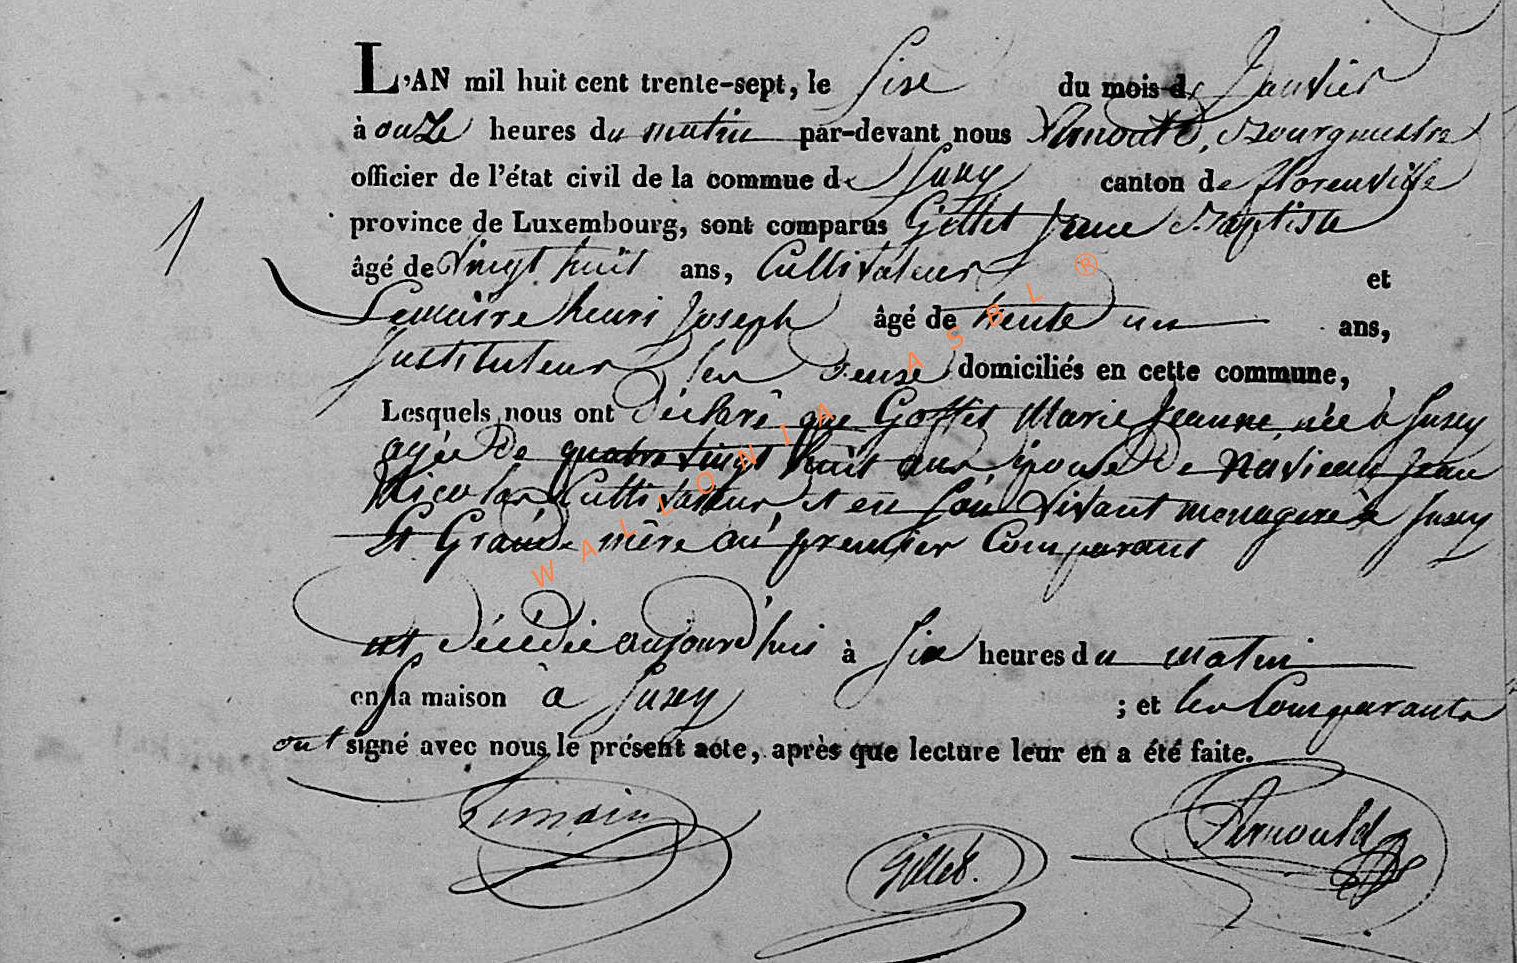 L'AN mil huit cent trente-sept, le sixe du mois de Janvier
à onze heures du matin par-devant nous Arnould, Bourgmestre
officier de l'état civil de la commue de Suxy canton de florenville
1
province de Luxembourg, sont comparus Gillet Jean Baptiste
âgé de vingt huit ans, Cultivateur et
Lemaire henri Joseph âgé de trente un ans,
Instituteur les deux domiciliés en cette commune,
Lesquels nous ont déclaré que Goffet Marie Jeanne, née à Suxy
agée de quatre vingt huit ans, épouse de Navieau Jean
Nicolas Cultivateur et en son vivant menagere à Suxy
et Grande mère au premier Comparant
est décédée aujourd'hui à six heures du matin
en sa maison à Suxy ; et les Comparants
ont signé avec nous le présent acte, après que lecture leur en a été faite.
Gillet. Arnould
WALLONIA ASBL ®